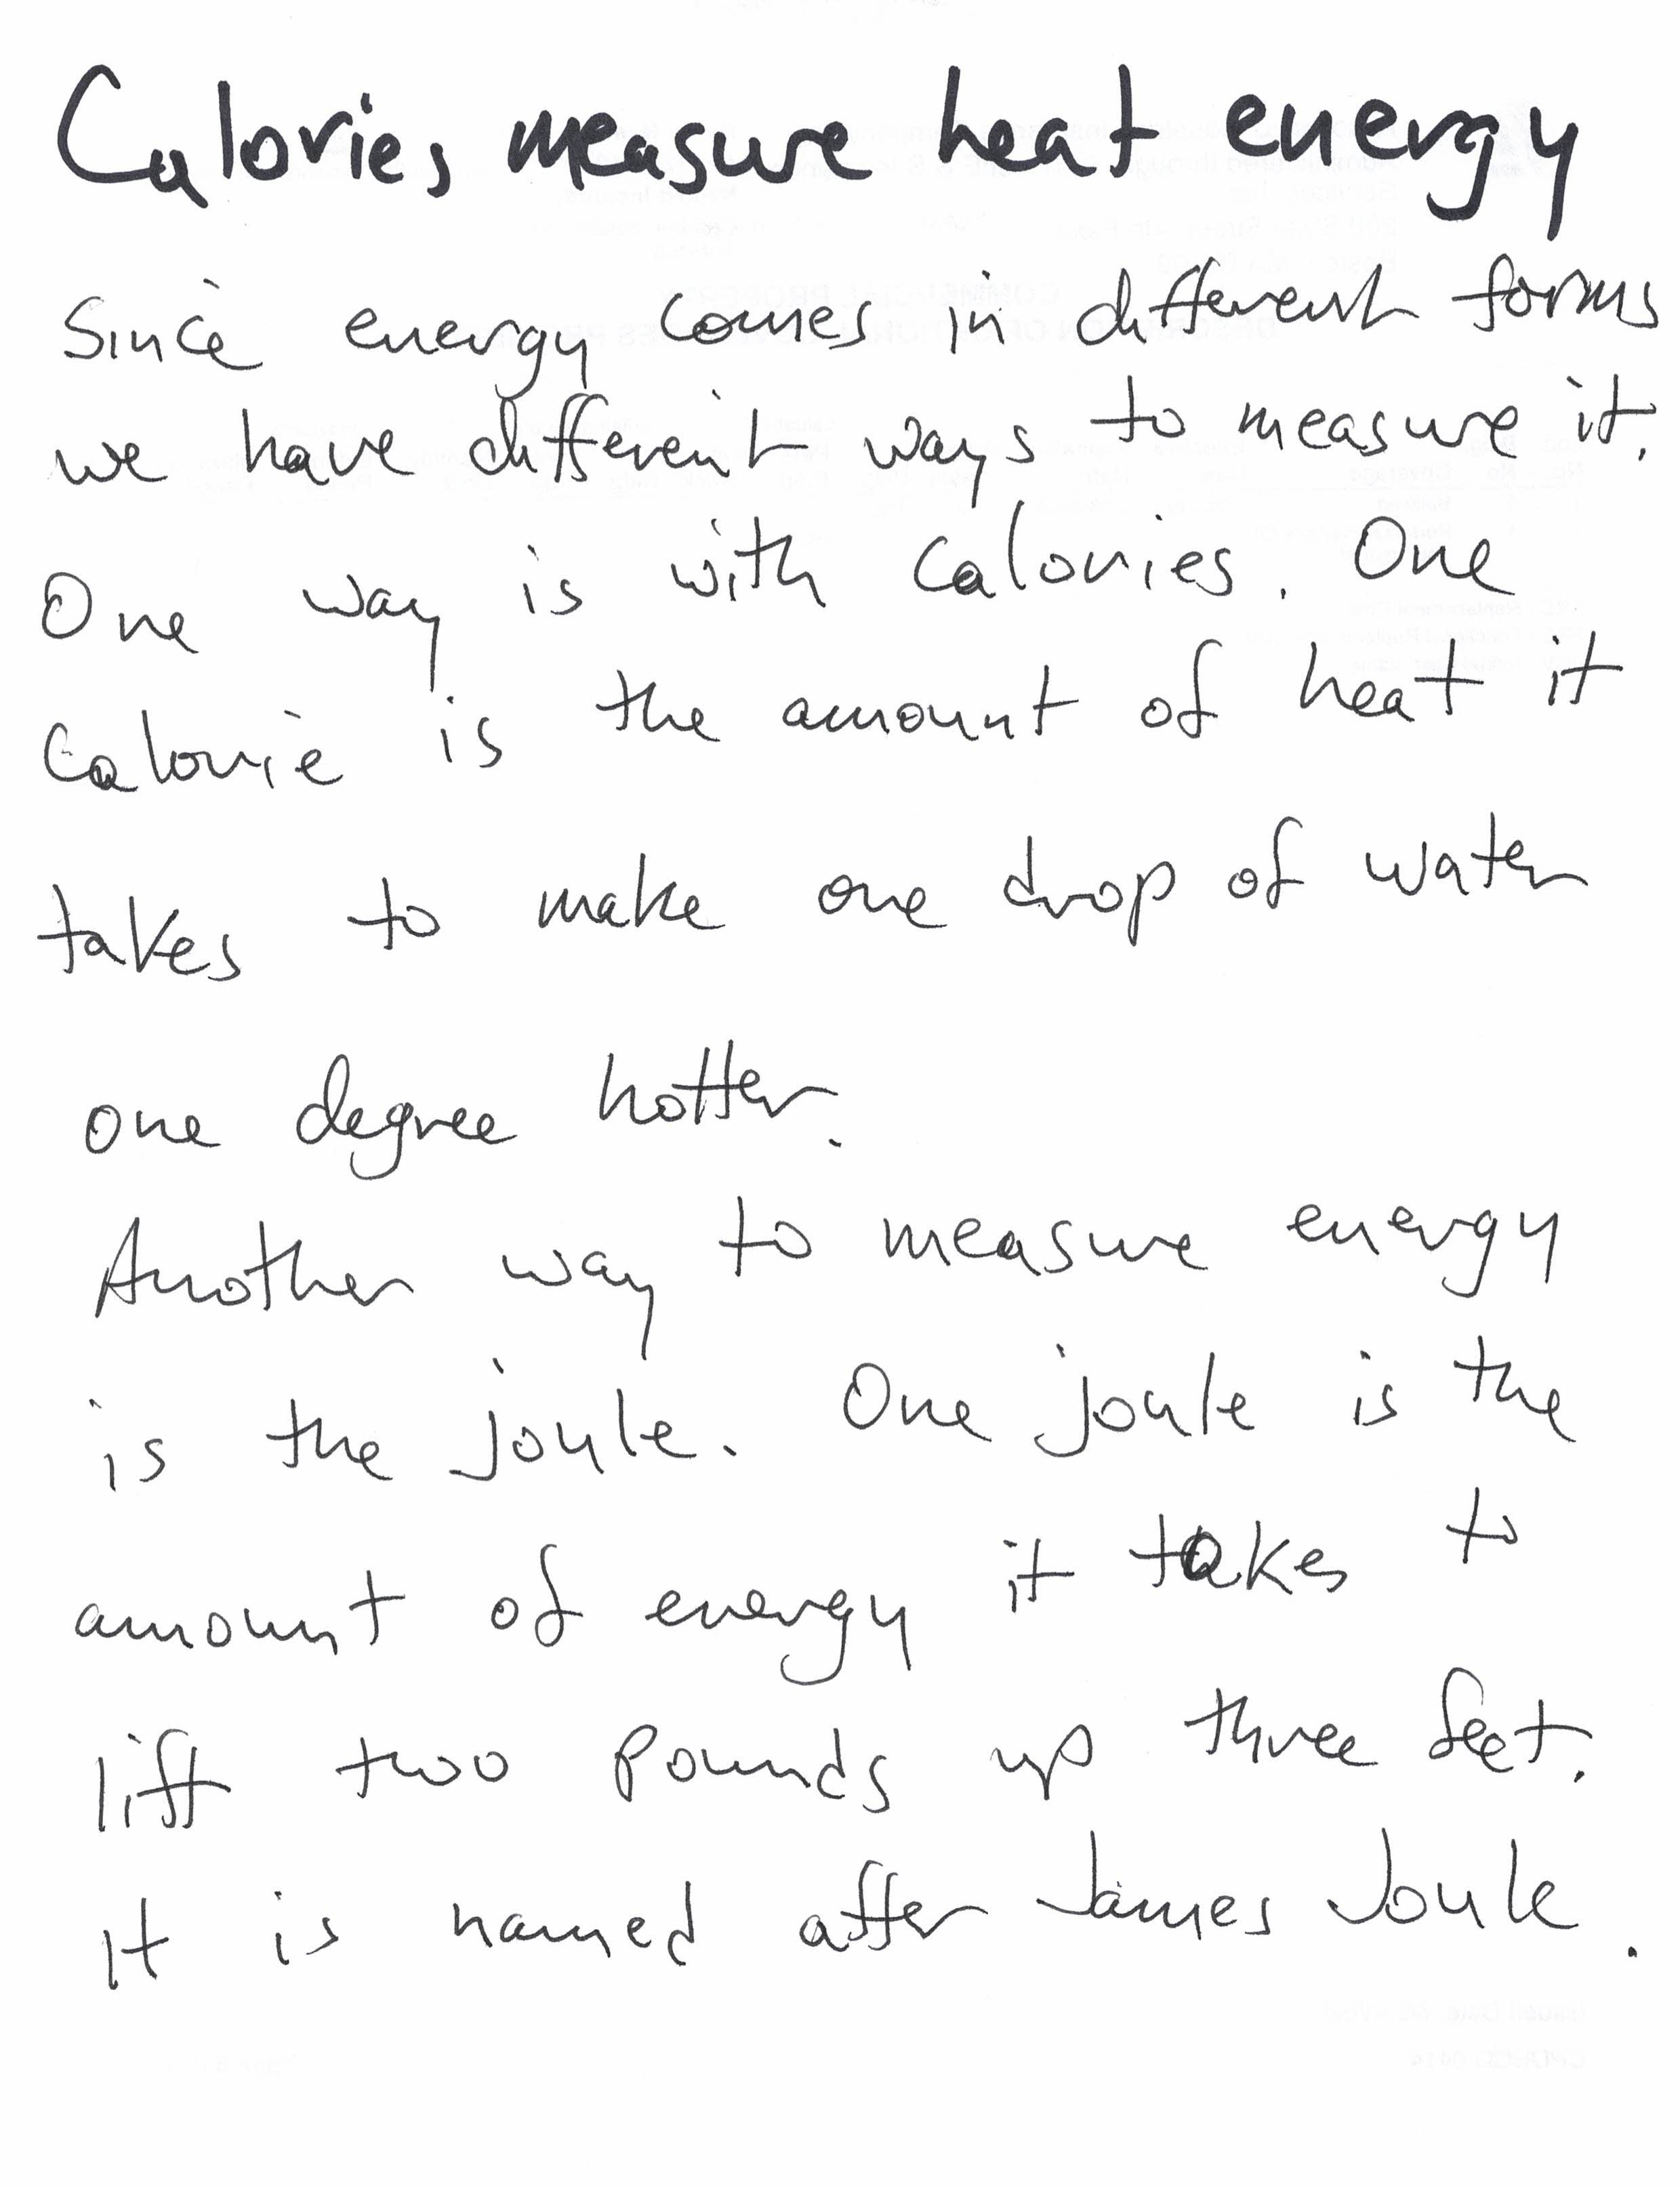 Calories measure heat energy
Since energy comes in different forms
we have different ways to measure it.
One way is with calories. One
calorie is the amount of heat it
takes to make one drop of water
one degree hotter.
Another way to measure energy
is the joule. One joule is the
amount of energy it takes to
lift two pounds up three feet.
It is named after James Joule.